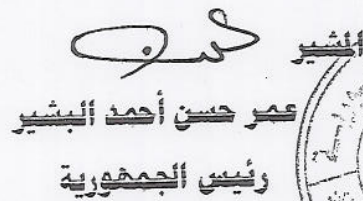 المشير
عمر حسن أحمد البشير
رئيس الجمهورية